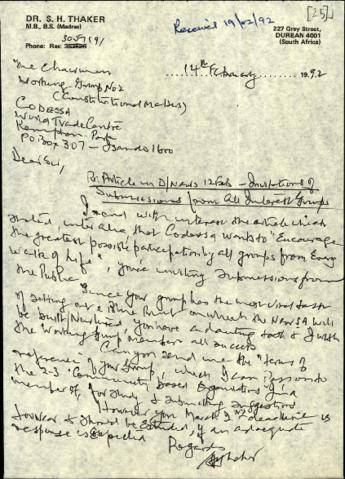 [25]
DR. S. H. THAKER
M.B., B.S. (Madras)
Received 19/02/92
Phone: Res:
227 Grey Street,
DURBAN 4001
(South Africa)
14th February 1992
The Chairman
Working Group No 2
(Constitutional Matters)
CODESSA
World Trade Centre
Kempton Park
PO Box 307 - Isando 1600
Dear Sir,
Re: Article in D/News 12 Feb - Invitations of
Submissions from All Interest Groups
I read with interest the article which
stated, inter alia, that Codessa wants to "Encourage
the greatest possible participation by all groups from Every
Walk of Life", & you're inviting Submissions from
the Public
Since your group has the most vital task
of setting out a Blue Print on which the New SA will
be built/Nurtured, you have a daunting task & I wish
the Working Group members all success
Can you send me the "terms of
reference" of your Group, which I can pass on to
the 2-3 Community based Organisations I'm a
member of, for study & submitting suggestions
However your March 2nd deadline is
too near & should be extended, if an adequate
response is expected
Regards